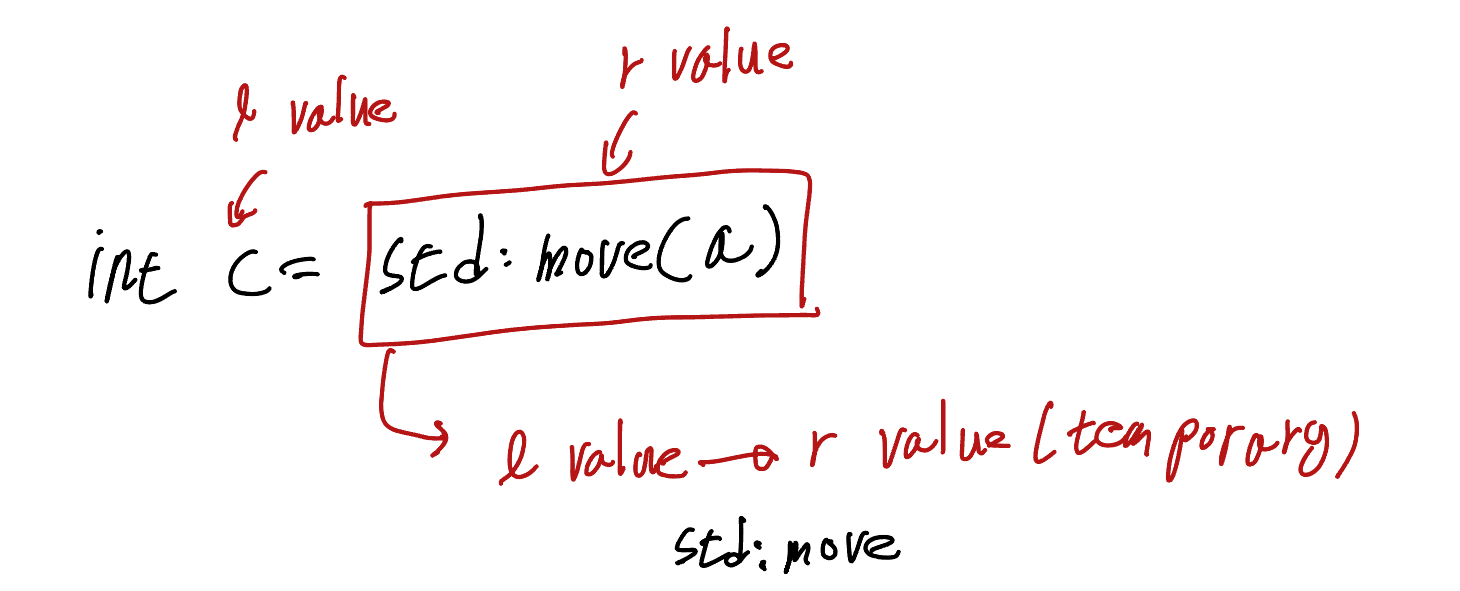 r value
l value
int c = std:move(a)
l value → r value (temporary)
std:move